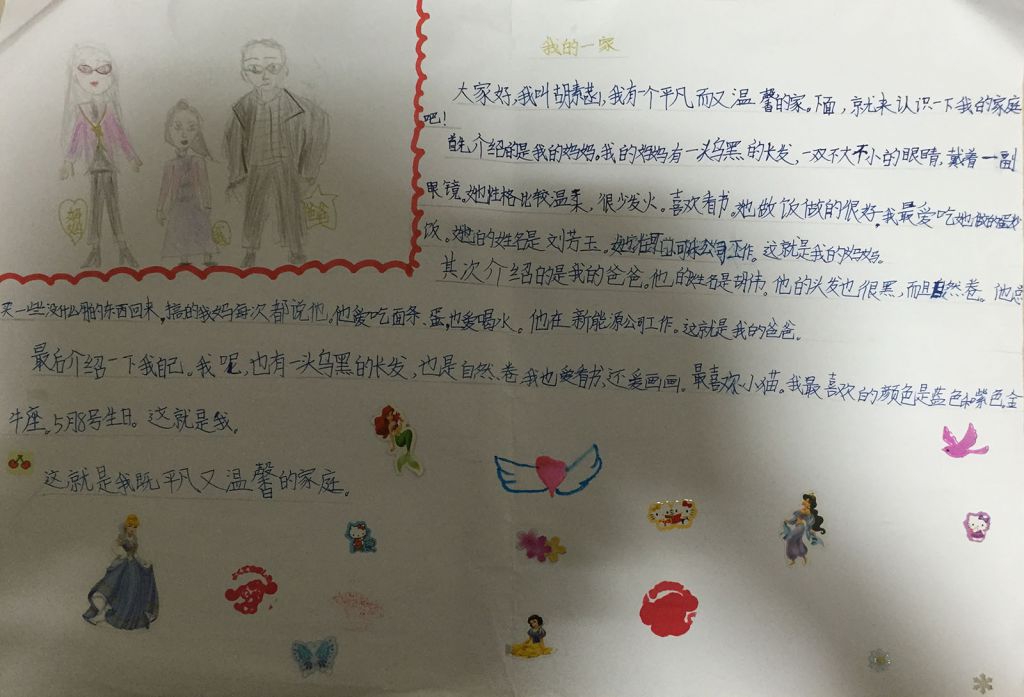 我的一家
大家好,我叫胡,我有个平凡而又温馨的家。下面,就来认识一下我的家庭
吧!
首先介绍的是我的妈妈。我的妈妈有一头乌黑的长发,一双不大不小的眼睛,戴着一副
眼镜。她性格比较温柔,很少发火。喜欢看书。她做饭做的很好,我最爱吃她做的蛋炒
饭。她的姓名是刘芳玉。她在公司工作。这就是我的妈妈。
其次介绍的是我的爸爸。他的姓名是胡伟。他的头发也很黑,而且自然卷。他总
买一些没什么用的东西回来,搞的我妈每次都说他。他爱吃面条、蛋,也爱喝水。他在新能源公司工作。这就是我的爸爸。
最后介绍一下我自己。我呢,也有一头乌黑的长发,也是自然卷,我也爱看书,还爱画画,最喜欢小猫。我最喜欢的颜色是蓝色和紫色。金
牛座。5月8号生日。这就是我。
这就是我既平凡又温馨的家庭。
妈妈
我
爸爸